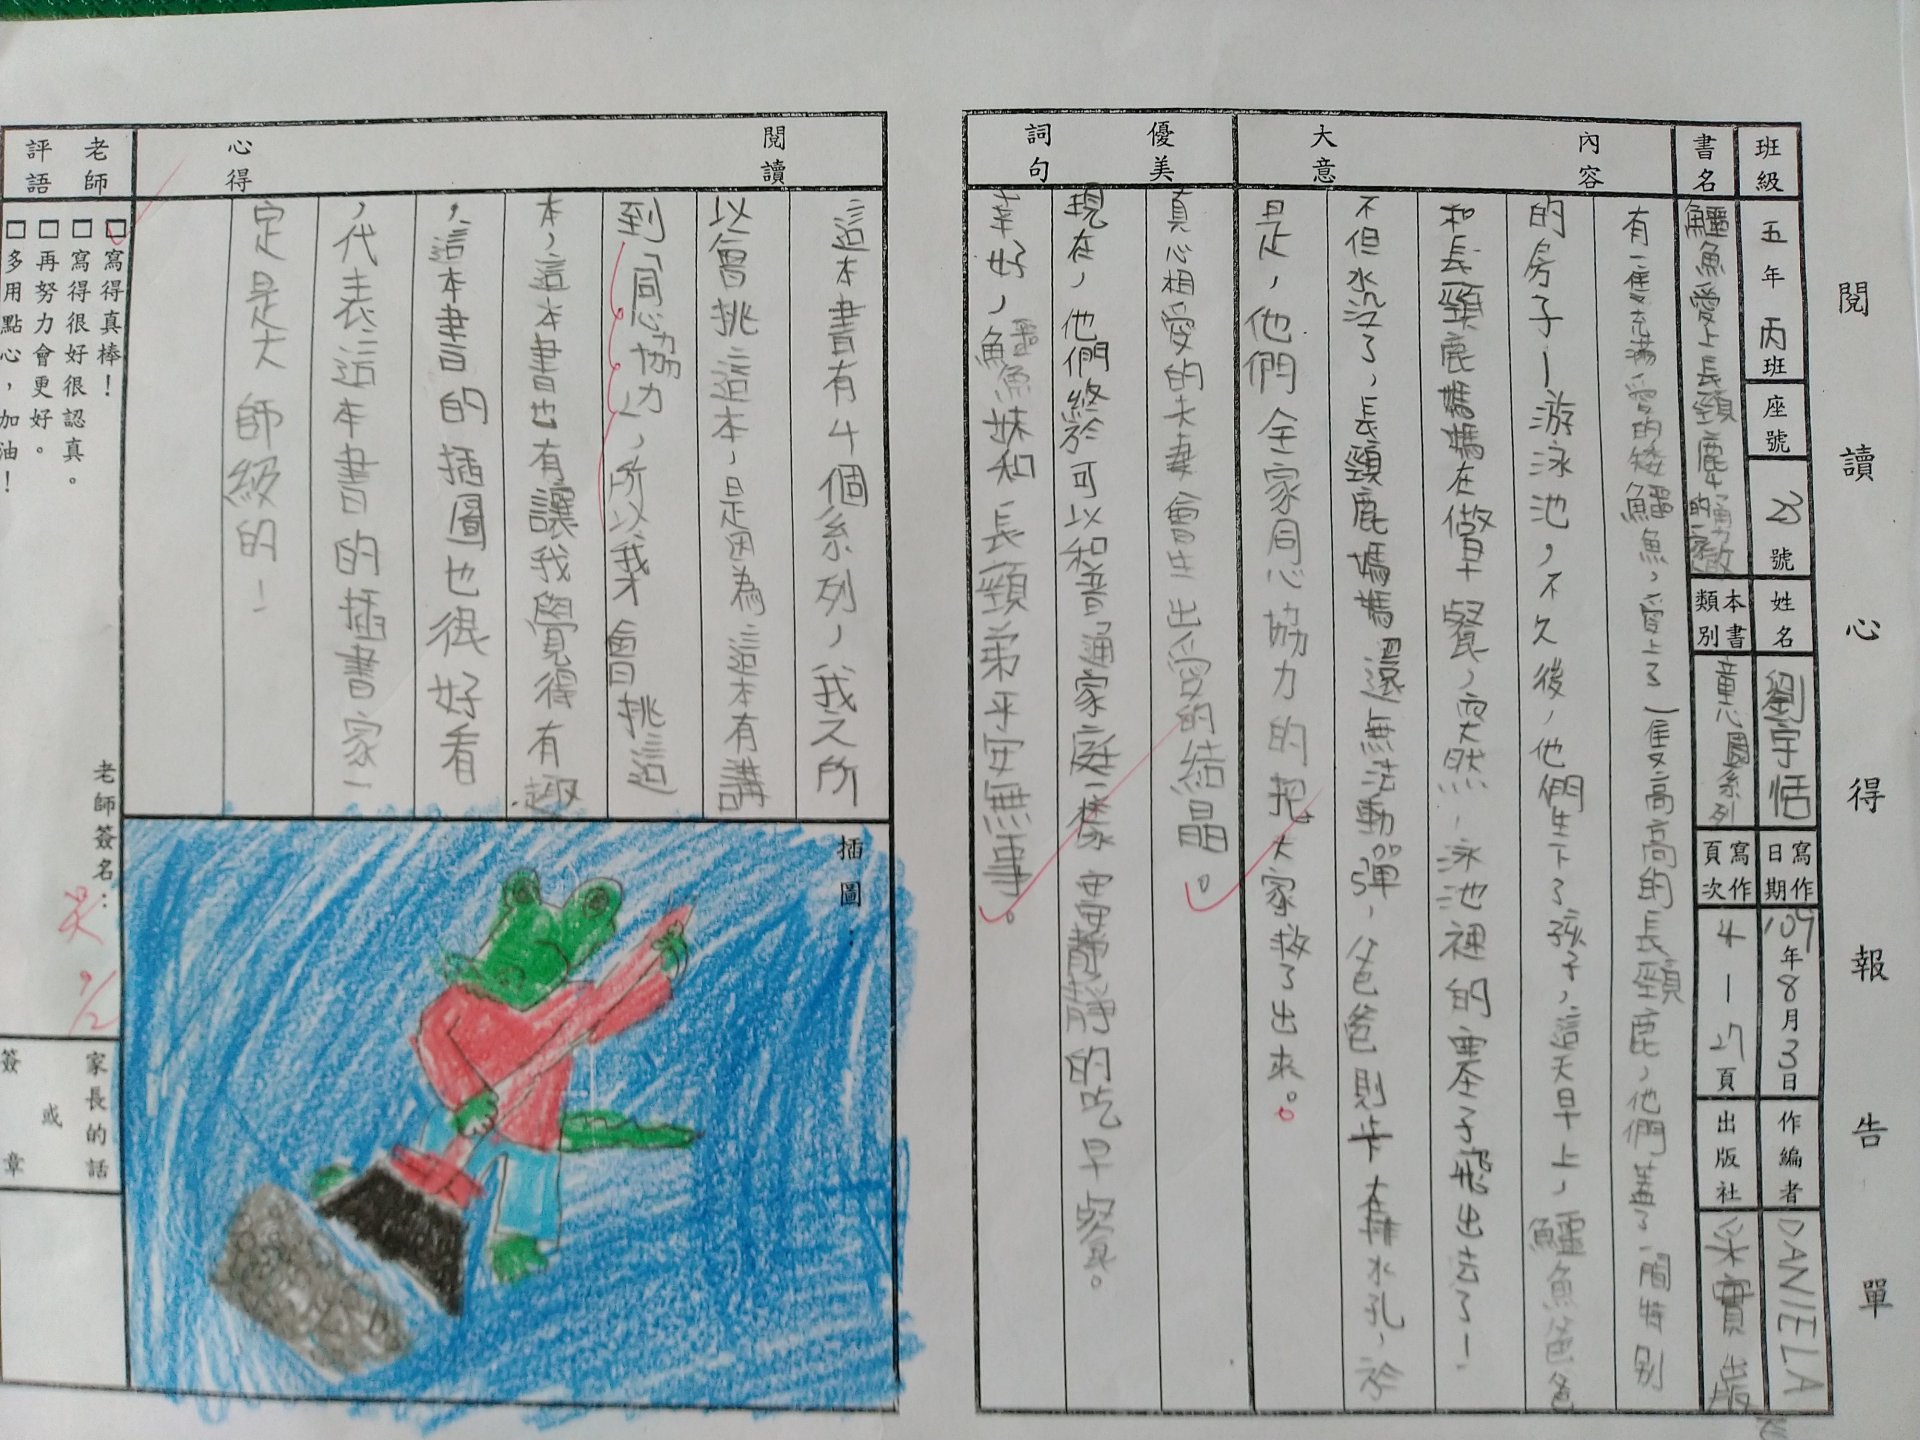 閱讀心得報告單
班級 五年丙班 座號 23號 姓名 劉宇恬 寫作日期 109年8月3日 作編者 DANIELA
書名 鱷魚愛上長頸鹿 的一家 本書類別 童心園系列 寫作頁次 4 1 27頁 出版社 采實出版
內容大意
有一隻充滿愛的矮鱷魚,愛上了一隻高高的長頸鹿,他們蓋了一間特別
的房子—游泳池,不久後,他們生下了孩子,這天早上,鱷魚爸爸
和長頸鹿媽媽在做早餐,突然,泳池裡的塞子飛出去了!
不但水沉了,長頸鹿媽媽還無法動彈,爸爸則卡在排水孔,於
是,他們全家同心協力的把大家救了出來。
優美詞句
真心相愛的夫妻會生出愛的結晶。
現在,他們終於可以和普通家庭一樣安安靜靜的吃早餐。
幸好,鱷魚妹和長頸弟平安無事。
閱讀心得
這本書有4個系列,我之所
以會挑這本,是因為這本有講
到「同心協力」,所以我才會挑這
本,這本書也有讓我覺得有趣
,這本書的插圖也很好看
,代表這本書的插畫家一
定是大師級的!
插圖:
老師評語
□寫得真棒!
□寫得很好很認真。
□再努力會更好。
□多用點心,加油!
老師簽名:
9/2
家長的話或簽章